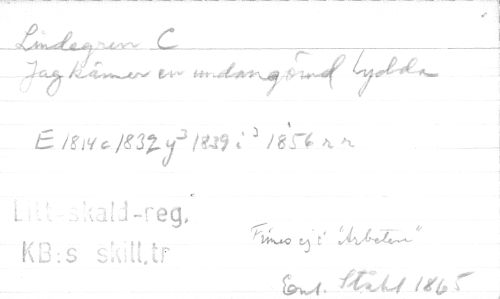 Lindegren C
Jag känner en undangömd hydda
E 1814 c 1832 y³ 1839 i³ 1856 r r
Litt-skald-reg.
KB:s skill.tr
Finns ej i "Arbeten"
Enl. Ståhl 1865